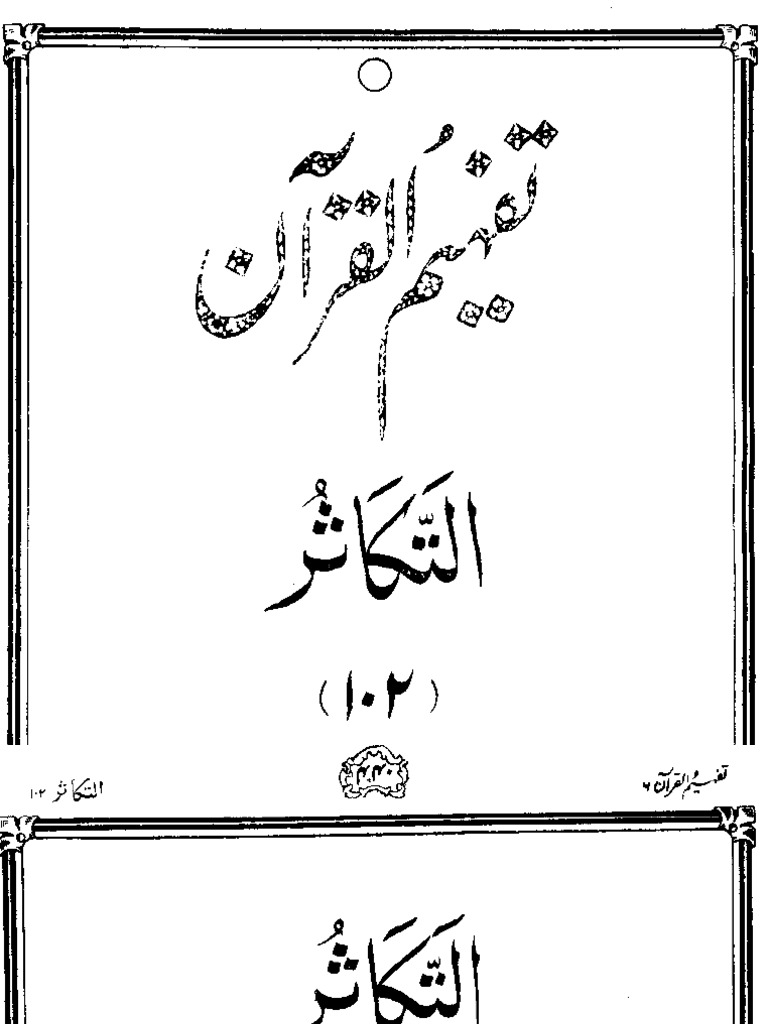 تفہیم القرآن
التَّكَاثُرُ
(۱۰۲)
تفہیم القرآن ۶
التکاثر ۱۰۲
التَّكَاثُرُ